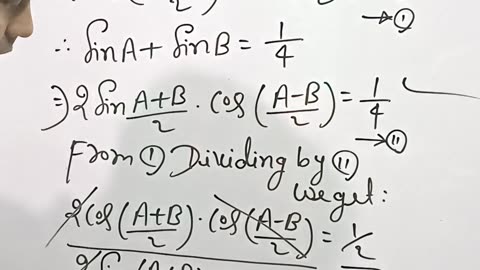 → (I)
∴ Sin A + Sin B = 1/4
⇒ 2 Sin (A+B)/2 . Cos ((A-B)/2) = 1/4
→ (II)
From (I) Dividing by (II)
we get:
2 Cos ((A+B)/2) . Cos ((A-B)/2) = 1/2